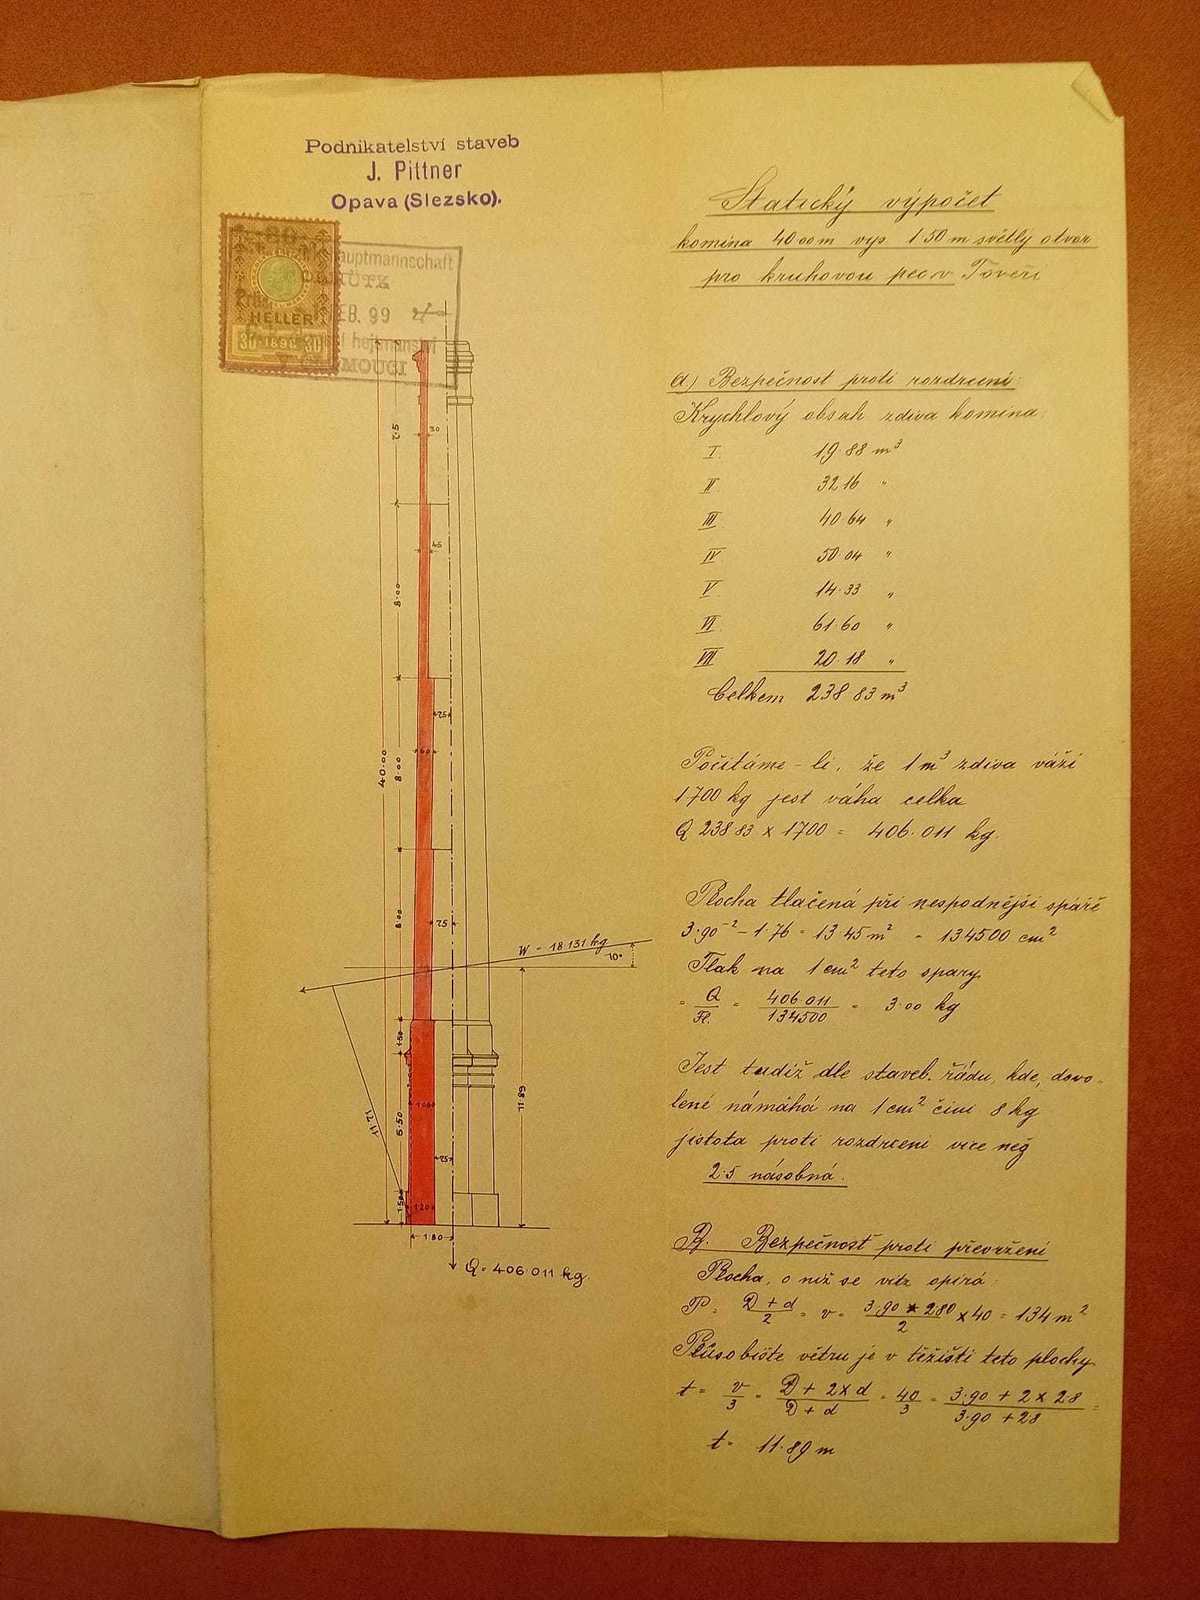 Podnikatelství staveb
J. Pittner
Opava (Slezsko).
HELLER
30 1898 30
auptmannschaft
EB. 99
hejtmanství
MOUCI
7.5
30
45
8.00
25
60
40.00
8.00
8.00
25
W = 18.131 kg
10°
1.50
11.89
12.17
6.50
1.00
25
1.50
1.20
1.80
Q = 406.011 kg.
Statický výpočet
komína 40.00 m vys. 1.50 m světlý otvor
pro kruhovou pec v Tověři
a) Bezpečnost proti rozdrcení:
Krychlový obsah zdiva komína:
I. 19.88 m³
II 32.16 "
III 40.64 "
IV 50.04 "
V 14.33 "
VI 61.60 "
VII 20.18 "
Celkem 238.83 m³
Počítáme-li, že 1 m³ zdiva váží
1700 kg jest váha celka
Q 238.83 x 1700 = 406.011 kg.
Plocha tlačená při nespodnější spáře
3.90² - 1.76 = 13.45 m² = 134500 cm²
Tlak na 1 cm² teto spary
= Q/Pl. = 406.011/134500 = 3.00 kg
Jest tudíž dle staveb. řádu, kde, dovo-
lené námáhá na 1 cm² činí 8 kg
jistota proti rozdrcení více než
2.5 násobná.
B. Bezpečnost proti převržení
Plocha, o niž se vítr opírá:
P = D + d/2 = v = 3.90 + 2.80/2 x 40 = 134 m²
Působiště větru je v těžišti teto plochy
t = v/3 = D + 2 x d/D + d = 40/3 = 3.90 + 2 x 2.8/3.90 + 2.8 =
t = 11.89 m